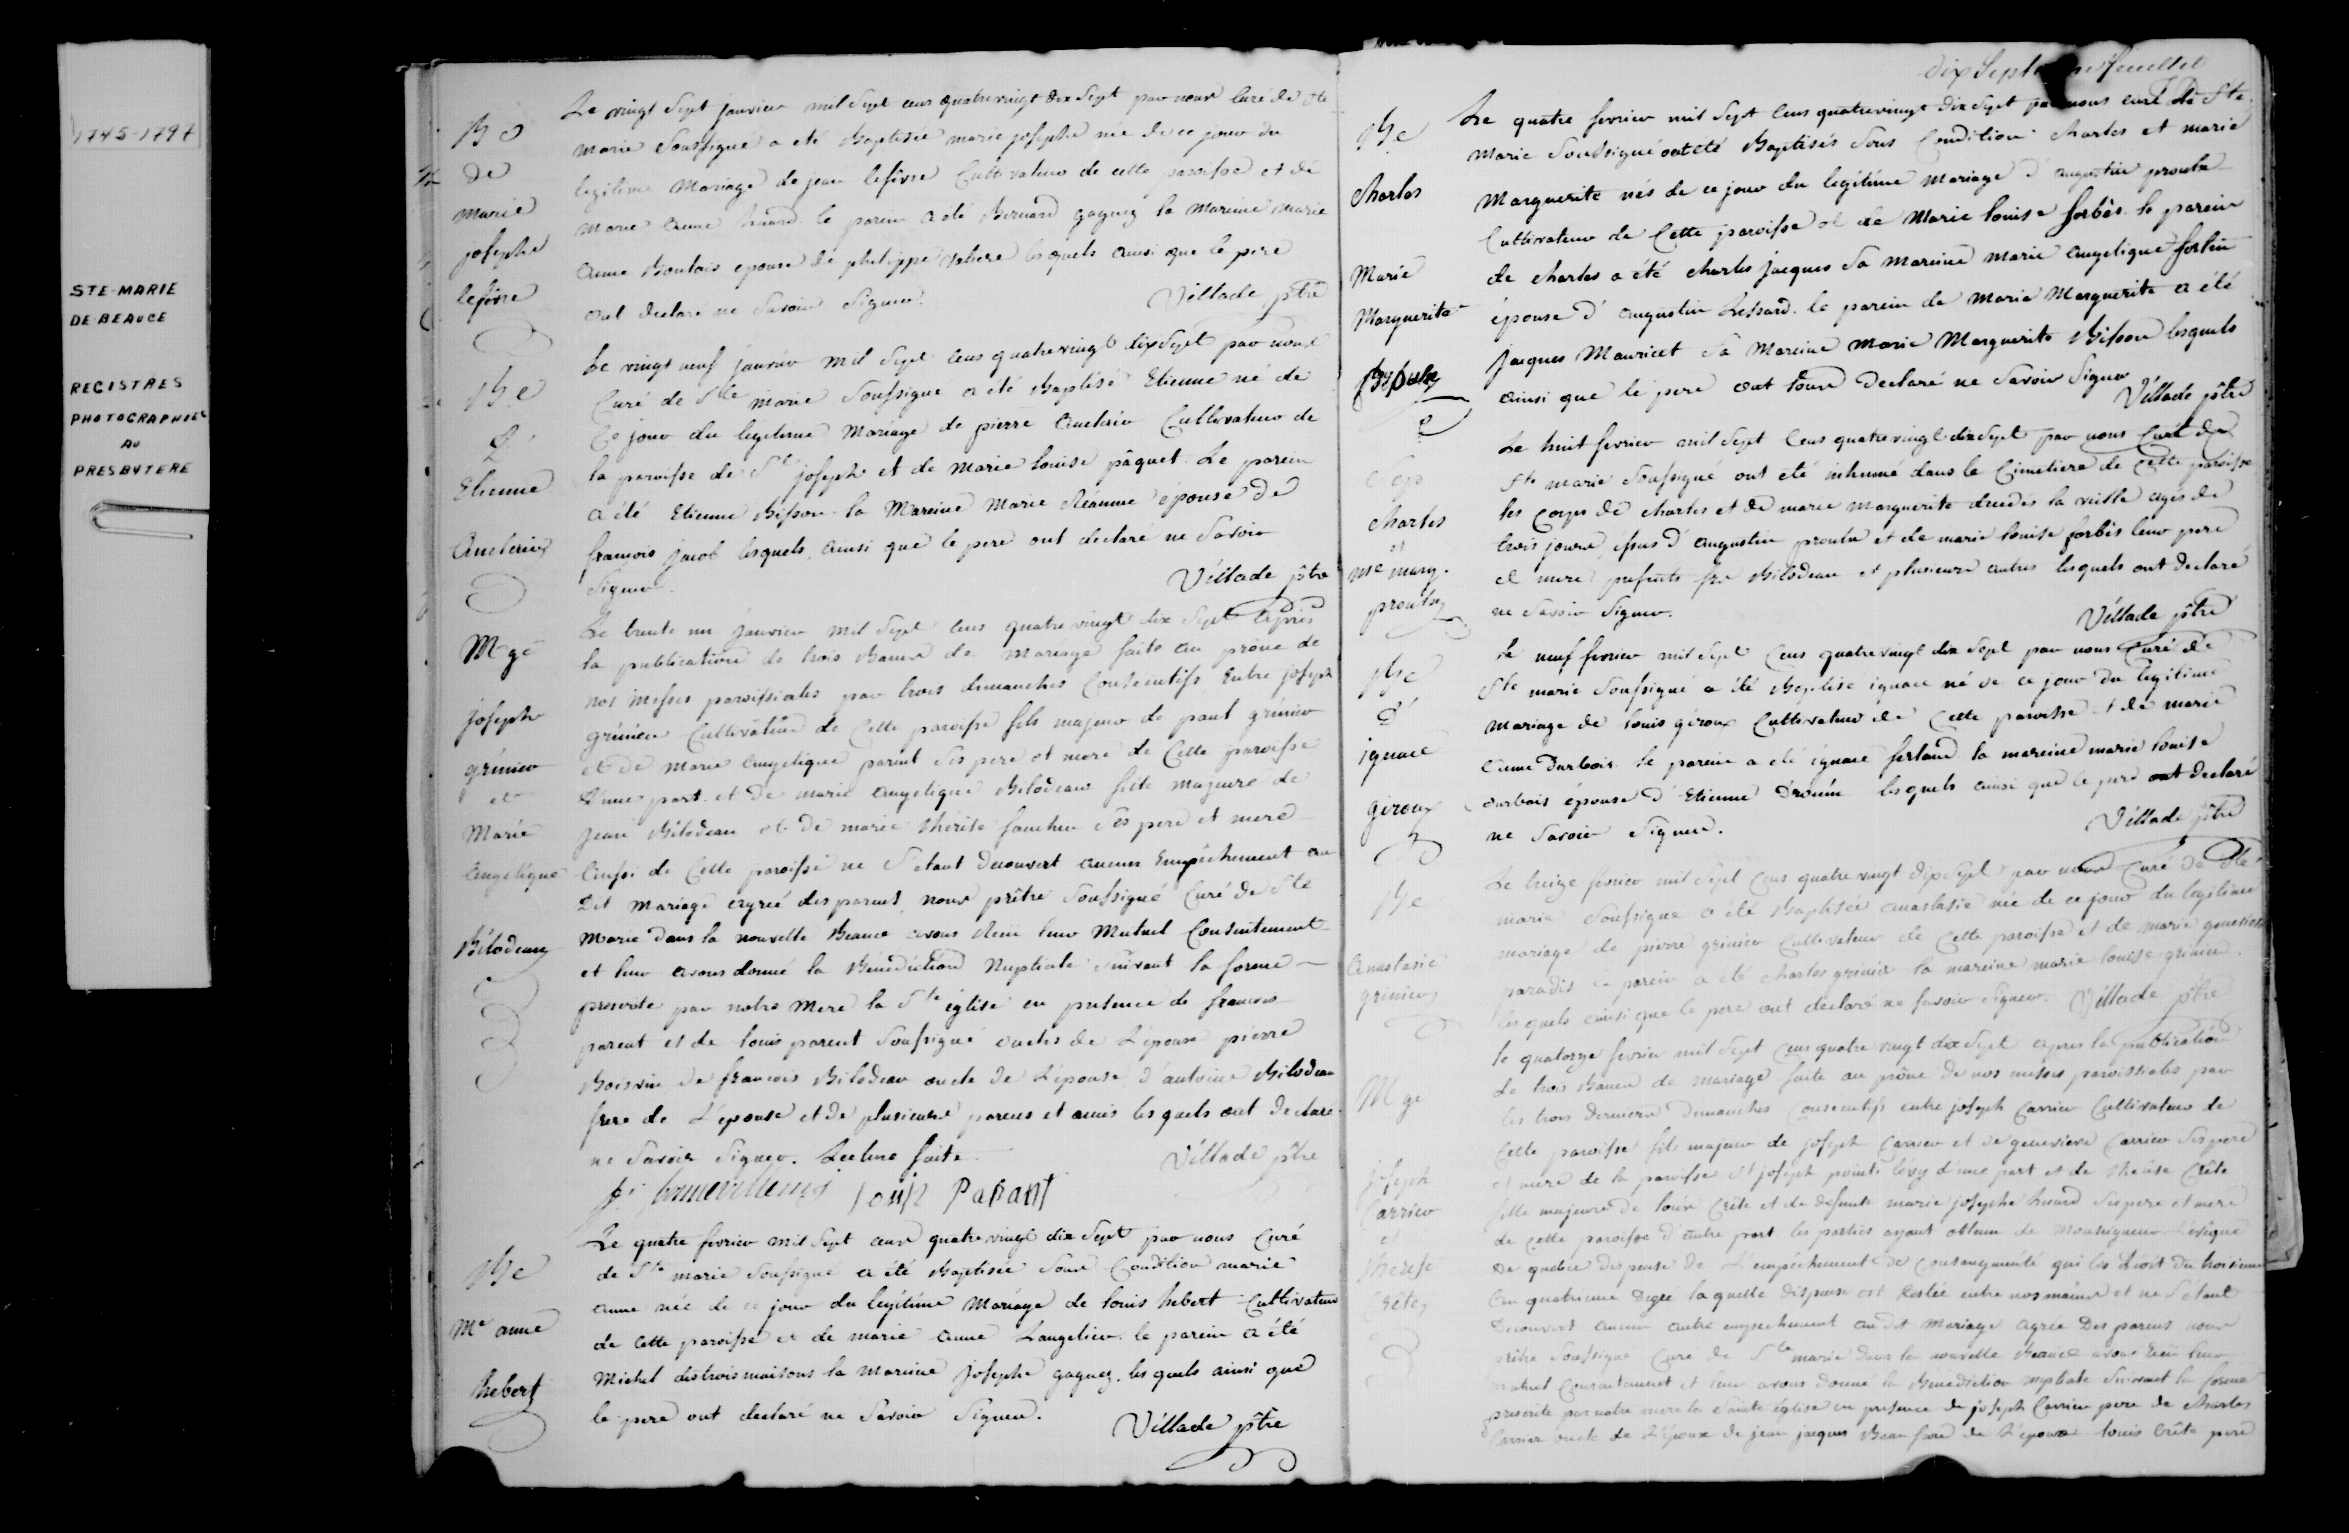 1745-1797
STE-MARIE
DE BEAUCE
REGISTRES
PHOTOGRAPHIÉS
AU
PRESBYTERE
Be
de
marie
josephe
lefivre
Le vingt sept janvier mil sept cens quatre vingt dix sept par nous curé de Ste
marie soussigné a eté Baptisée marie josephe née de ce jour du
legitime Mariage de jean lefivre Cultivateur de cette paroisse et de
marie anne huard. le parein a eté Bernard gagnez la Mareine marie
anne Boutois epouse de philippe vohere lesquels ainsi que le pere
ont declaré ne savoir signer.
Villade ptre
Be
d'
Etienne
Auclerie
Le vingt neuf janvier mil sept cens quatre vingt dix sept par nous
Curé de Ste marie soussigné a été Baptisé Etienne né de
Ce jour du legitime Mariage de pierre Cultivateur de
la paroisse de St joseph et de Marie louise pâquet. Le parein
a été Etienne Bisson la Mareine Marie Réaume épouse de
francois jacob lesquels ainsi que le pere ont declaré ne savoir
signer.
Villade ptre
Mge
joseph
grénier
et
Marie
angelique
Bilodeau
Le trente un janvier mil sept cens quatre vingt dix sept après
la publication de trois Banns de Mariage faite au prône de
nos messes paroissiales par trois dimanches Consécutifs Entre joseph
grénier Cultivateur de Cette paroisse fils majeur de paul grénier
et de Marie angelique parent ses pere et mere de Cette paroisse
d'une part. et de marie angelique Bilodeau fille majeure de
jean Bilodeau et de marie therese faucher ses pere et mere
aussi de Cette paroisse ne s'étant decouvert aucun Empêchement au
Dit Mariage agréé des parens, nous prêtre soussigné Curé de Ste
Marie dans la nouvelle Beauce avons Recu leur Mutuel Consentement
et leur avons donné la Bénédiction Nuptiale suivant la forme
prescrite par notre Mere la Ste église en presence de francois
parent et de louis parent soussigné oncles de L'époux pierre
Boisvin de francois Bilodeau oncle de L'épouse d'antoine Bilodeau
frere de L'épouse et de plusieurs parens et amis lesquels ont declaré
ne Savoir Signer. Lecture faite
Villade ptre
Louis Parant
Be
Me anne
hebert
Le quatre fevrier mil sept cens quatre vingt dix sept par nous Curé
de Ste marie soussigné a été Baptisée sous Condition marie
anne née de ce jour du legitime Mariage de louis hebert Cultivateur
de cette paroisse et de marie anne Langelier. le parein a été
Michel destroismaisons la Mareine josephe gagnez. lesquels ainsi que
le pere ont declaré ne Savoir Signer.
Villade ptre
dix septieme feuillet
Be
charles
Marie
Marguerite
proulx
Le quatre fevrier mil sept cens quatre vingt dix sept par nous curé de Ste
Marie soussigné ont eté Baptisés sous Condition charles et marie
Marguerite nés de ce jour du legitime Mariage d'augustin proulx
Cultivateur de Cette paroisse et de Marie louise forbès. le parein
de charles a été charles jacques sa Mareine marie angelique fortin
épouse d'augustin Lessard. le parein de Marie Marguerite a été
jacques Mauricet sa Mareine Marie Marguerite Bisson lesquels
ainsi que le pere ont tous declaré ne Savoir Signer
Villade ptre
charles
et
me marg.
proulx
Le huit fevrier mil sept Cens quatre vingt dix sept par nous Curé de
Ste marie soussigné ont eté inhumé dans le Cimetiere de Cette paroisse
les corps de charles et de marie marguerite decedés la veille agés de
trois jours, issus d'augustin proulx et de marie louise forbès leur pere
et mere presents Bilodeau et plusieurs autres lesquels ont declaré
ne Savoir Signer.
Villade ptre
Be
d'
ignace
giroux
Le neuf fevrier mil sept Cens quatre vingt dix sept par nous Curé de
Ste marie soussigné a été Baptisé ignace né de ce jour du legitime
Mariage de louis giroux Cultivateur de Cette paroisse et de marie
anne Durbois. le parein a eté ignace ferland la mareine marie louise
durbois épouse d'Etienne Drouin lesquels ainsi que le pere ont declaré
ne Savoir Signer.
Villade ptre
Be
Anastasie
grénier
Le treize fevrier mil sept Cens quatre vingt dix sept par nous Curé de Ste
marie soussigné a été Baptisée anastasie née de ce jour du legitime
mariage de pierre grénier Cultivateur de Cette paroisse et de marie genevieve
paradis le parein a été charles grénier la mareine marie louise grénier.
lesquels ainsi que le pere ont declaré ne savoir signer. Villade ptre
Mge
joseph
Carrier
et
therese
Crête
le quatorze fevrier mil sept Cens quatre vingt dix sept apres la publication
de trois Banns de mariage faite au prône de nos messes paroissiales par
les trois derniers Dimanches Consecutifs entre joseph Carrier Cultivateur de
Cette paroisse fils majeur de joseph Carrier et de genevieve Carrier ses pere
et mere de la paroisse St joseph pointe lévy d'une part et de therese Crête
fille majeure de louis Crête et de defunte marie josephe huard ses pere et mere
de cette paroisse d'autre part les parties ayant obtenu de Monseigneur L'évêque
de quebec dispense de L'empêchement de Consanguinité qui les Lioit du troisieme
au quatrieme Degré laquelle dispense est Restée entre nos mains et ne s'étant
Decouvert aucun autre empechement au dit Mariage agréé Des parens nous
prêtre soussigné Curé de Ste marie dans la nouvelle Beauce avons Recu leur
mutuel Consentement et leur avons donné la Benediction nuptiale suivant la forme
prescrite par notre mere la Sainte église en presence de joseph Carrier pere de charles
Carrier oncle de L'époux de jean jacques de L'epoux louis Crête pere